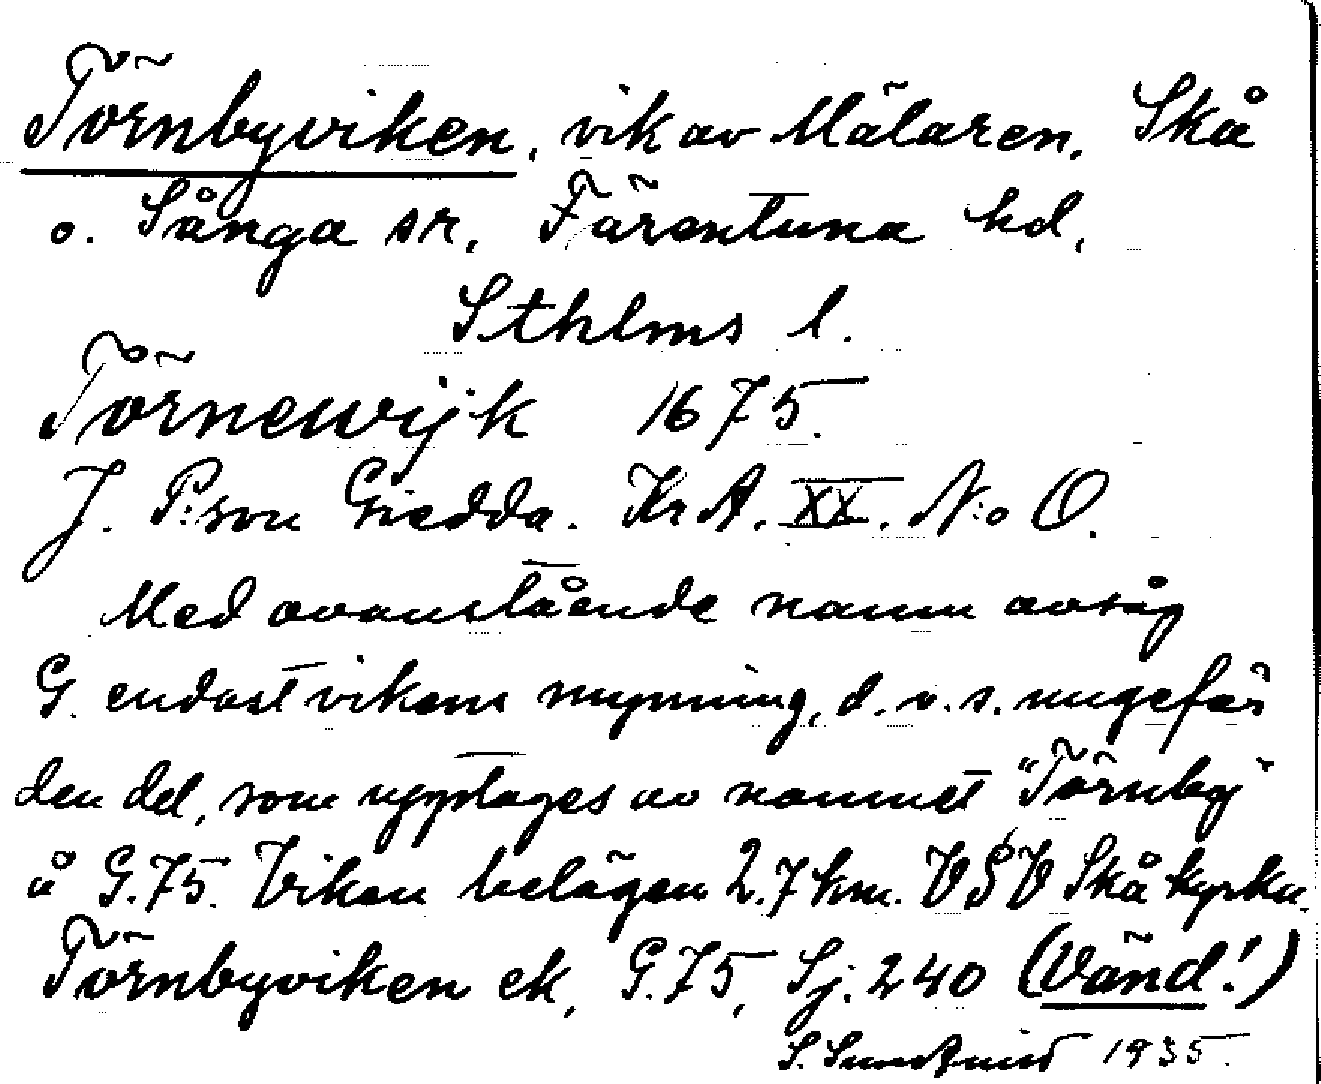 Törnbyviken, vik av Mälaren, Skå
o. Sånga sr, Färentuna hd,
Sthlms l.
Törnewijk 1675.
J. P:son Giedda. KrA. XX. N:o O.
Med ovanstående namn avsåg
G. endast vikens mynning, d.v.s. ungefär
den del, som upptages av namnet "Törnby"
å G.75. Viken belägen 2.7 km. VSV Skå kyrka.
Törnbyviken ek, G.75, Sj. 240 (Vänd!)
S. Sundqvist 1935.